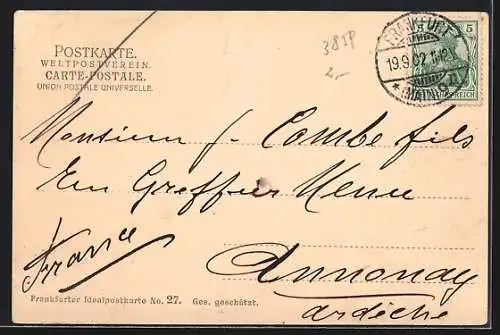 POSTKARTE.
WELTPOSTVEREIN.
CARTE-POSTALE.
UNION POSTALE UNIVERSELLE.
381P
2,-
5
FRANKFURT
19.9.02
* (MAIN)
REICH
Monsieur J. Combe fils
Em Greffier
France
Annonay
Ardèche
Frankfurter Idealpostkarte No. 27. Ges. geschützt.